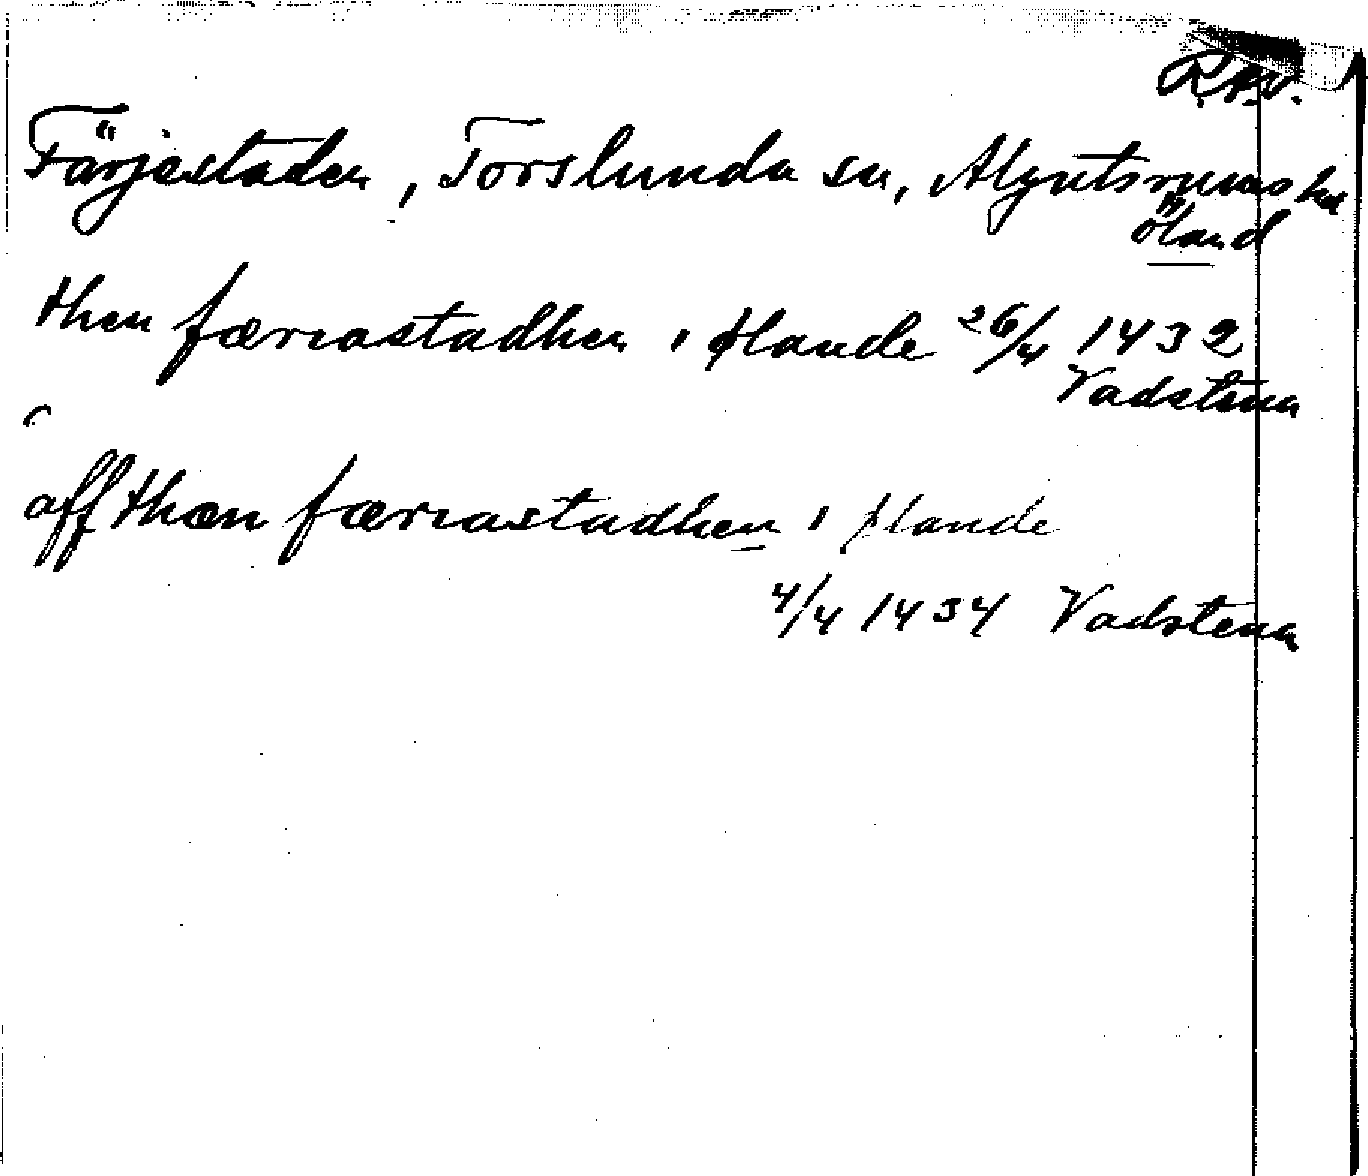 R.A.
Färjestaden, Torslunda sn, Algutsrums hd
Öland
then færiastadhen i ølande 26/4 1432
Vadstena
aff thæn færiastadhen i ølande
4/4 1434 Vadstena